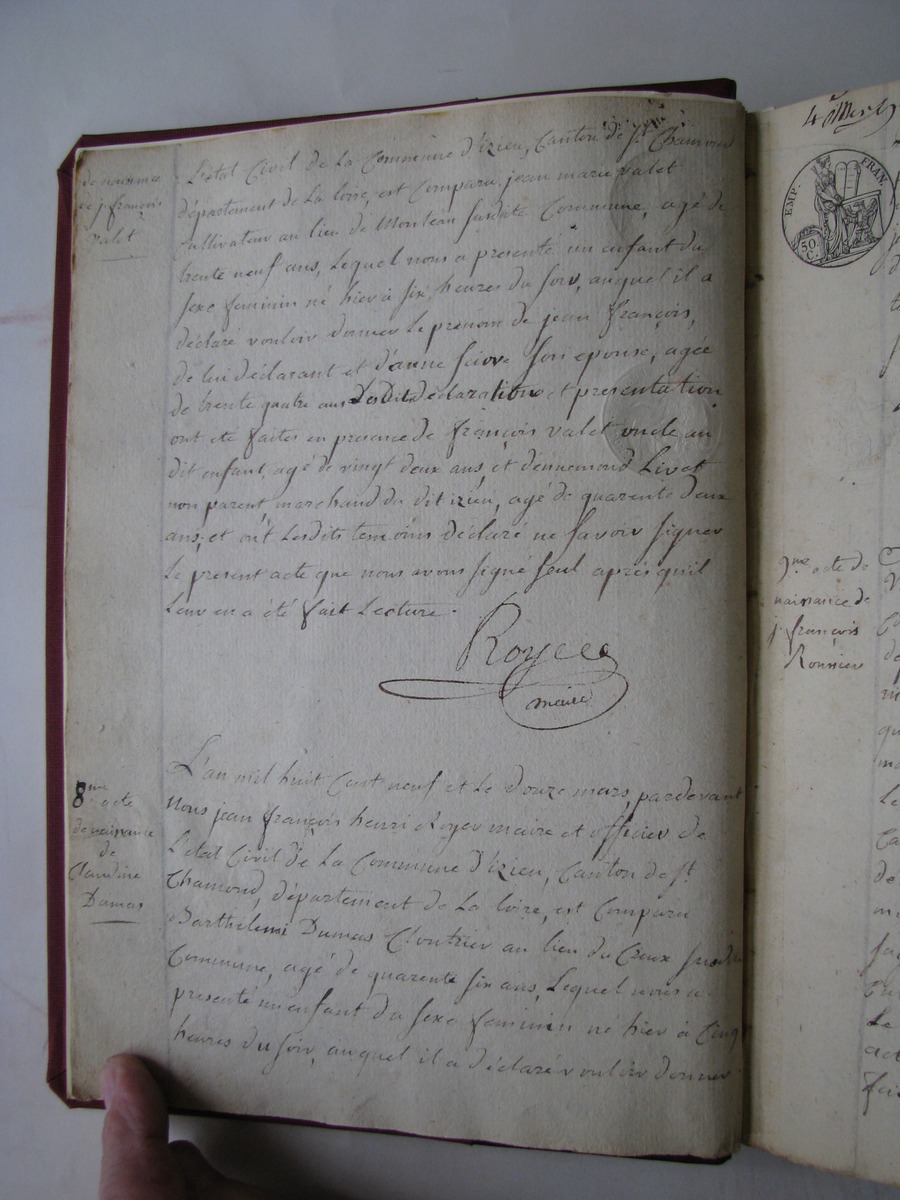 de naissance
de j. françois
valet
L'état Civil de La Commune d'izieu, Canton de St. Chamond
département de La Loire, est Comparu jean marie valet
Cultivateur au lieu de Monteau susdite Commune, agé de
trente neuf ans, Lequel nous a presenté un enfant du
sexe feminin né hier à six heures du soir, auquel il a
déclaré vouloir donner Le prenom de jean françois,
de lui déclarant et d'anne sciove son epouse, agée
de trente quatre ans Lesdites déclaration et presentation
ont été faites en presence de françois valet oncle au
dit enfant, agé de vingt deux ans, et d'ennemond Livet
non parent marchand du dit izieu, agé de quarente deux
ans, et ont Lesdits temoins déclaré ne savoir signer
Le present acte que nous avons signé seul après qu'il
Leur en a été fait Lecture.
Royer
maire
8me acte
de naissance
de
Claudine
Dumas
L'an mil huit Cent neuf et Le douze mars, pardevant
Nous jean françois henri Royer maire et officier de
L'etat Civil de La Commune d'izieu, Canton de St.
Chamond, département de La Loire, est Comparu
Barthelemi Dumas Cloutrier au lieu du Creux susdite
Commune, agé de quarente six ans, Lequel nous a
presenté un enfant du sexe feminin né hier à Cinq
heures du soir, auquel il a déclaré vouloir donner
EMP. FRAN.
50.
C.
9me acte de
naissance de
j. françois
Ronsier